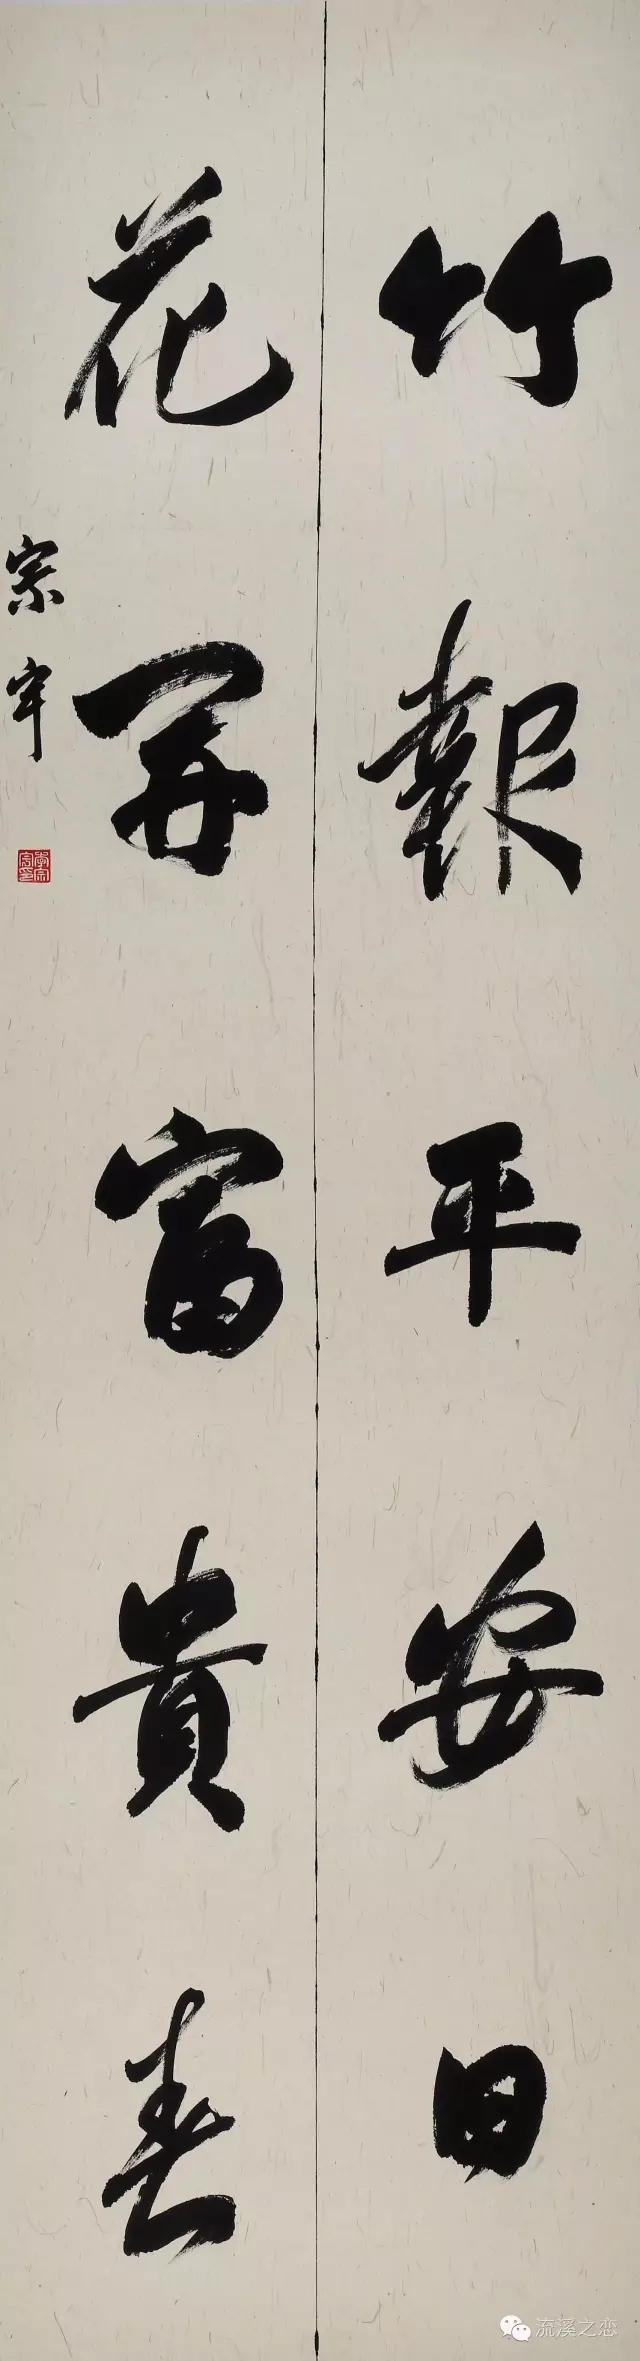 竹報平安日
花開富貴春
宗宇
流溪之恋